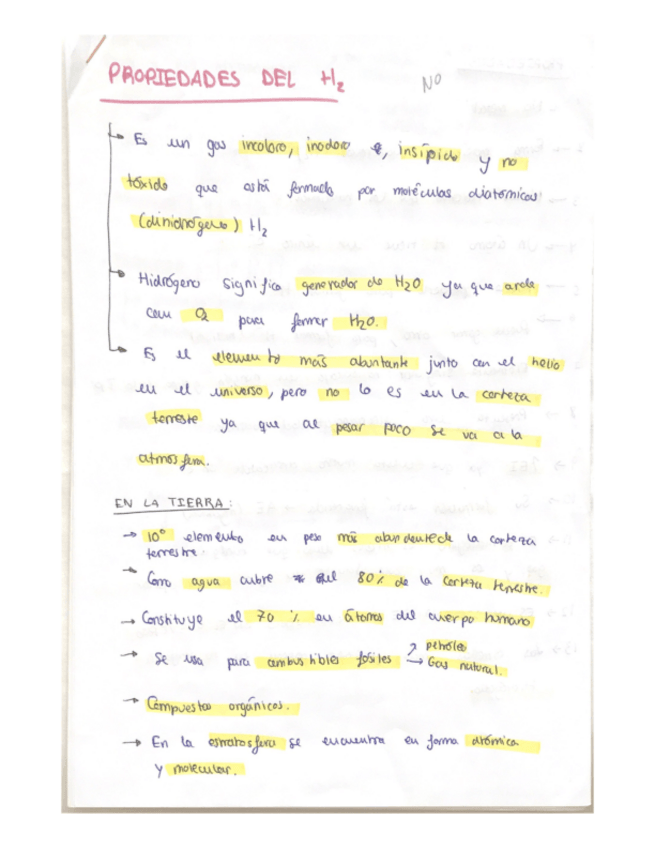 PROPIEDADES DEL H₂
NO
Es un gas incoloro, inodoro, insípido y no
tóxido que está formado por moléculas diatómicas
(dinidrógeno) H₂
Hidrógeno significa generador de H₂O ya que arde
con O₂ para formar H₂O.
Es el elemento más abuntante junto con el helio
en el universo, pero no lo es en la corteza
terrestre ya que al pesar poco se va a la
atmosfera.
EN LA TIERRA:
→ 10º elemento en peso más abundante de la corteza
terrestre
→ Como agua cubre el 80% de la corteza terrestre.
→ Constituye el 70 % en átomos del cuerpo humano
→ petróleo
→ Se usa para combustibles fósiles → Gas natural.
→ Compuestos orgánicos.
→ En la estratosfera se encuentra en forma atómica
y molecular.